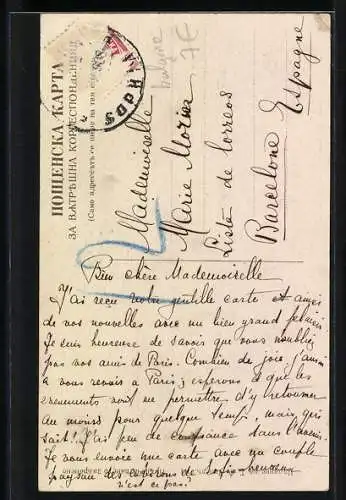 ПОЩЕНСКА КАРТА
ЗА ВѪТРѢШНА КОРРЕСПОНДЕНЦИЯ
(Само адрессътъ се пише на тая стра
bulgarie
7€
Mademoiselle
Marie Mozier
Lista de Correos
Barcelone
Espagne
12
Bien chère Mademoiselle
J'ai reçu votre gentille carte et ainsi
de vos nouvelles avec un bien grand plaisir
Je suis heureuse de savoir que vous n'oubliez
pas vos amis de Paris. Combien de joie j'aurai
a vous revoir a Paris; esperons que les
evenements vont me permettre d'y retourner
au moins pour quelque temps, mais, qui
sait! J'ai peu de confiance dans l'avenir.
Je vous envoie une carte avec un couple
paysan des environs de Sofia
n'est ce pas?